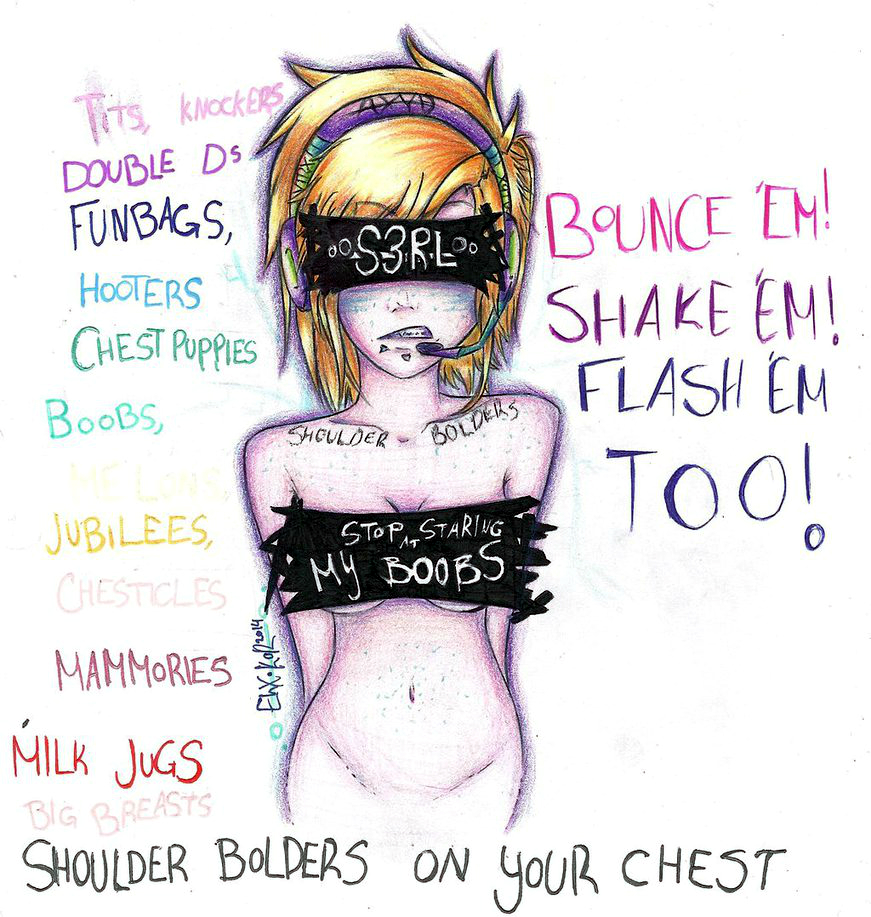 TITS, KNOCKERS
DOUBLE Ds
FUNBAGS,
HOOTERS
CHEST PUPPIES
BOOBS,
MELONS,
JUBILEES,
CHESTICLES
MAMMORIES
MILK JUGS
BIG BREASTS
SHOULDER BOLDERS ON YOUR CHEST
S3RL
SHOULDER BOLDERS
STOP STARING
AT
MY BOOBS
BOUNCE 'EM!
SHAKE 'EM!
FLASH 'EM
TOO!